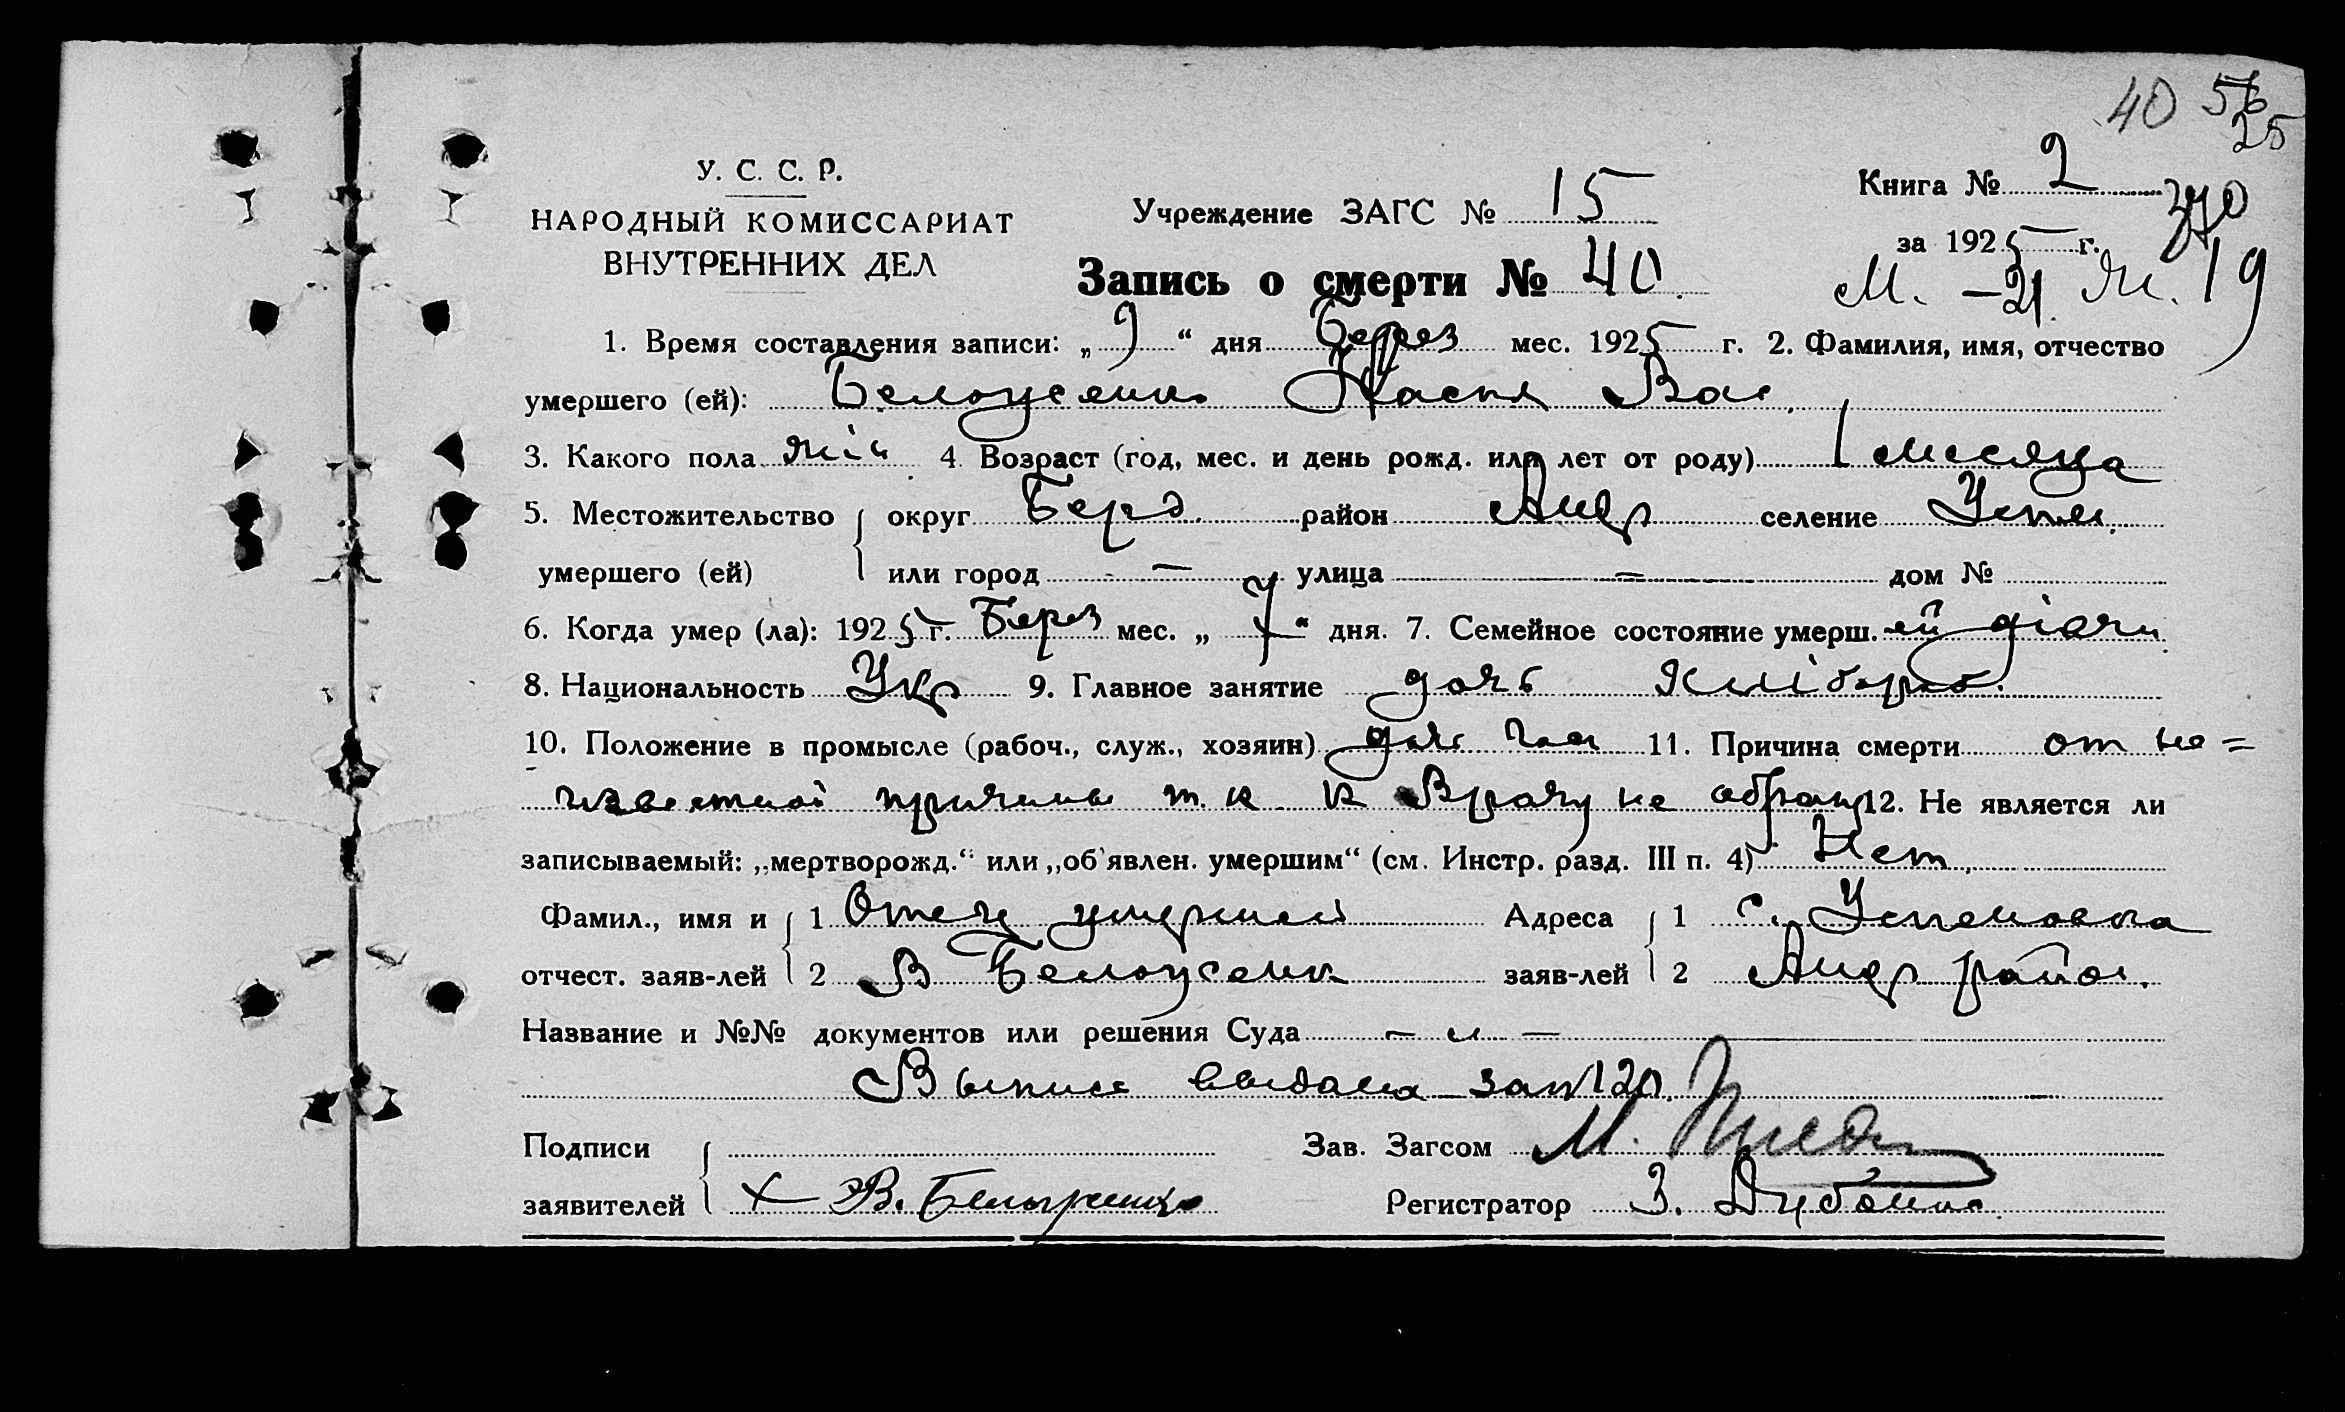 40 56
25
У. С. С. Р.
НАРОДНЫЙ КОМИССАРИАТ
ВНУТРЕННИХ ДЕЛ
Учреждение ЗАГС № 15
Книга № 2
370
за 1925 г.
Запись о смерти № 40.
М. – 21. Ж. 19
1. Время составления записи: „ 9 “ дня Берез мес. 1925 г. 2. Фамилия, имя, отчество
умершего (ей): Белоусенко Настя Вас.
3. Какого пола жін 4. Возраст (год, мес. и день рожд. или лет от роду) 1 месяца
5. Местожительство округ Берд. район Андр селение Успен.
умершего (ей) или город – улица – дом №
6. Когда умер (ла): 1925 г. Берез мес. „ 7 “ дня. 7. Семейное состояние умерш. ей
8. Национальность Укр 9. Главное занятие дочь хлібороб.
10. Положение в промысле (рабоч., служ., хозяин) дочь 11. Причина смерти от не=
известной причины т. к. к Врачу не обращ 12. Не является ли
записываемый: „мертворожд.“ или „об'явлен. умершим“ (см. Инстр. разд. III п. 4) Нет.
Фамил., имя и 1 Отец умершей Адреса 1 с. Успеновка
отчест. заяв-лей 2 В Белоусенк заяв-лей 2 Андр район.
Название и №№ документов или решения Суда – и –
Выпись выдана за № 120.
Подписи Зав. Загсом М.
заявителей + В. Регистратор З.